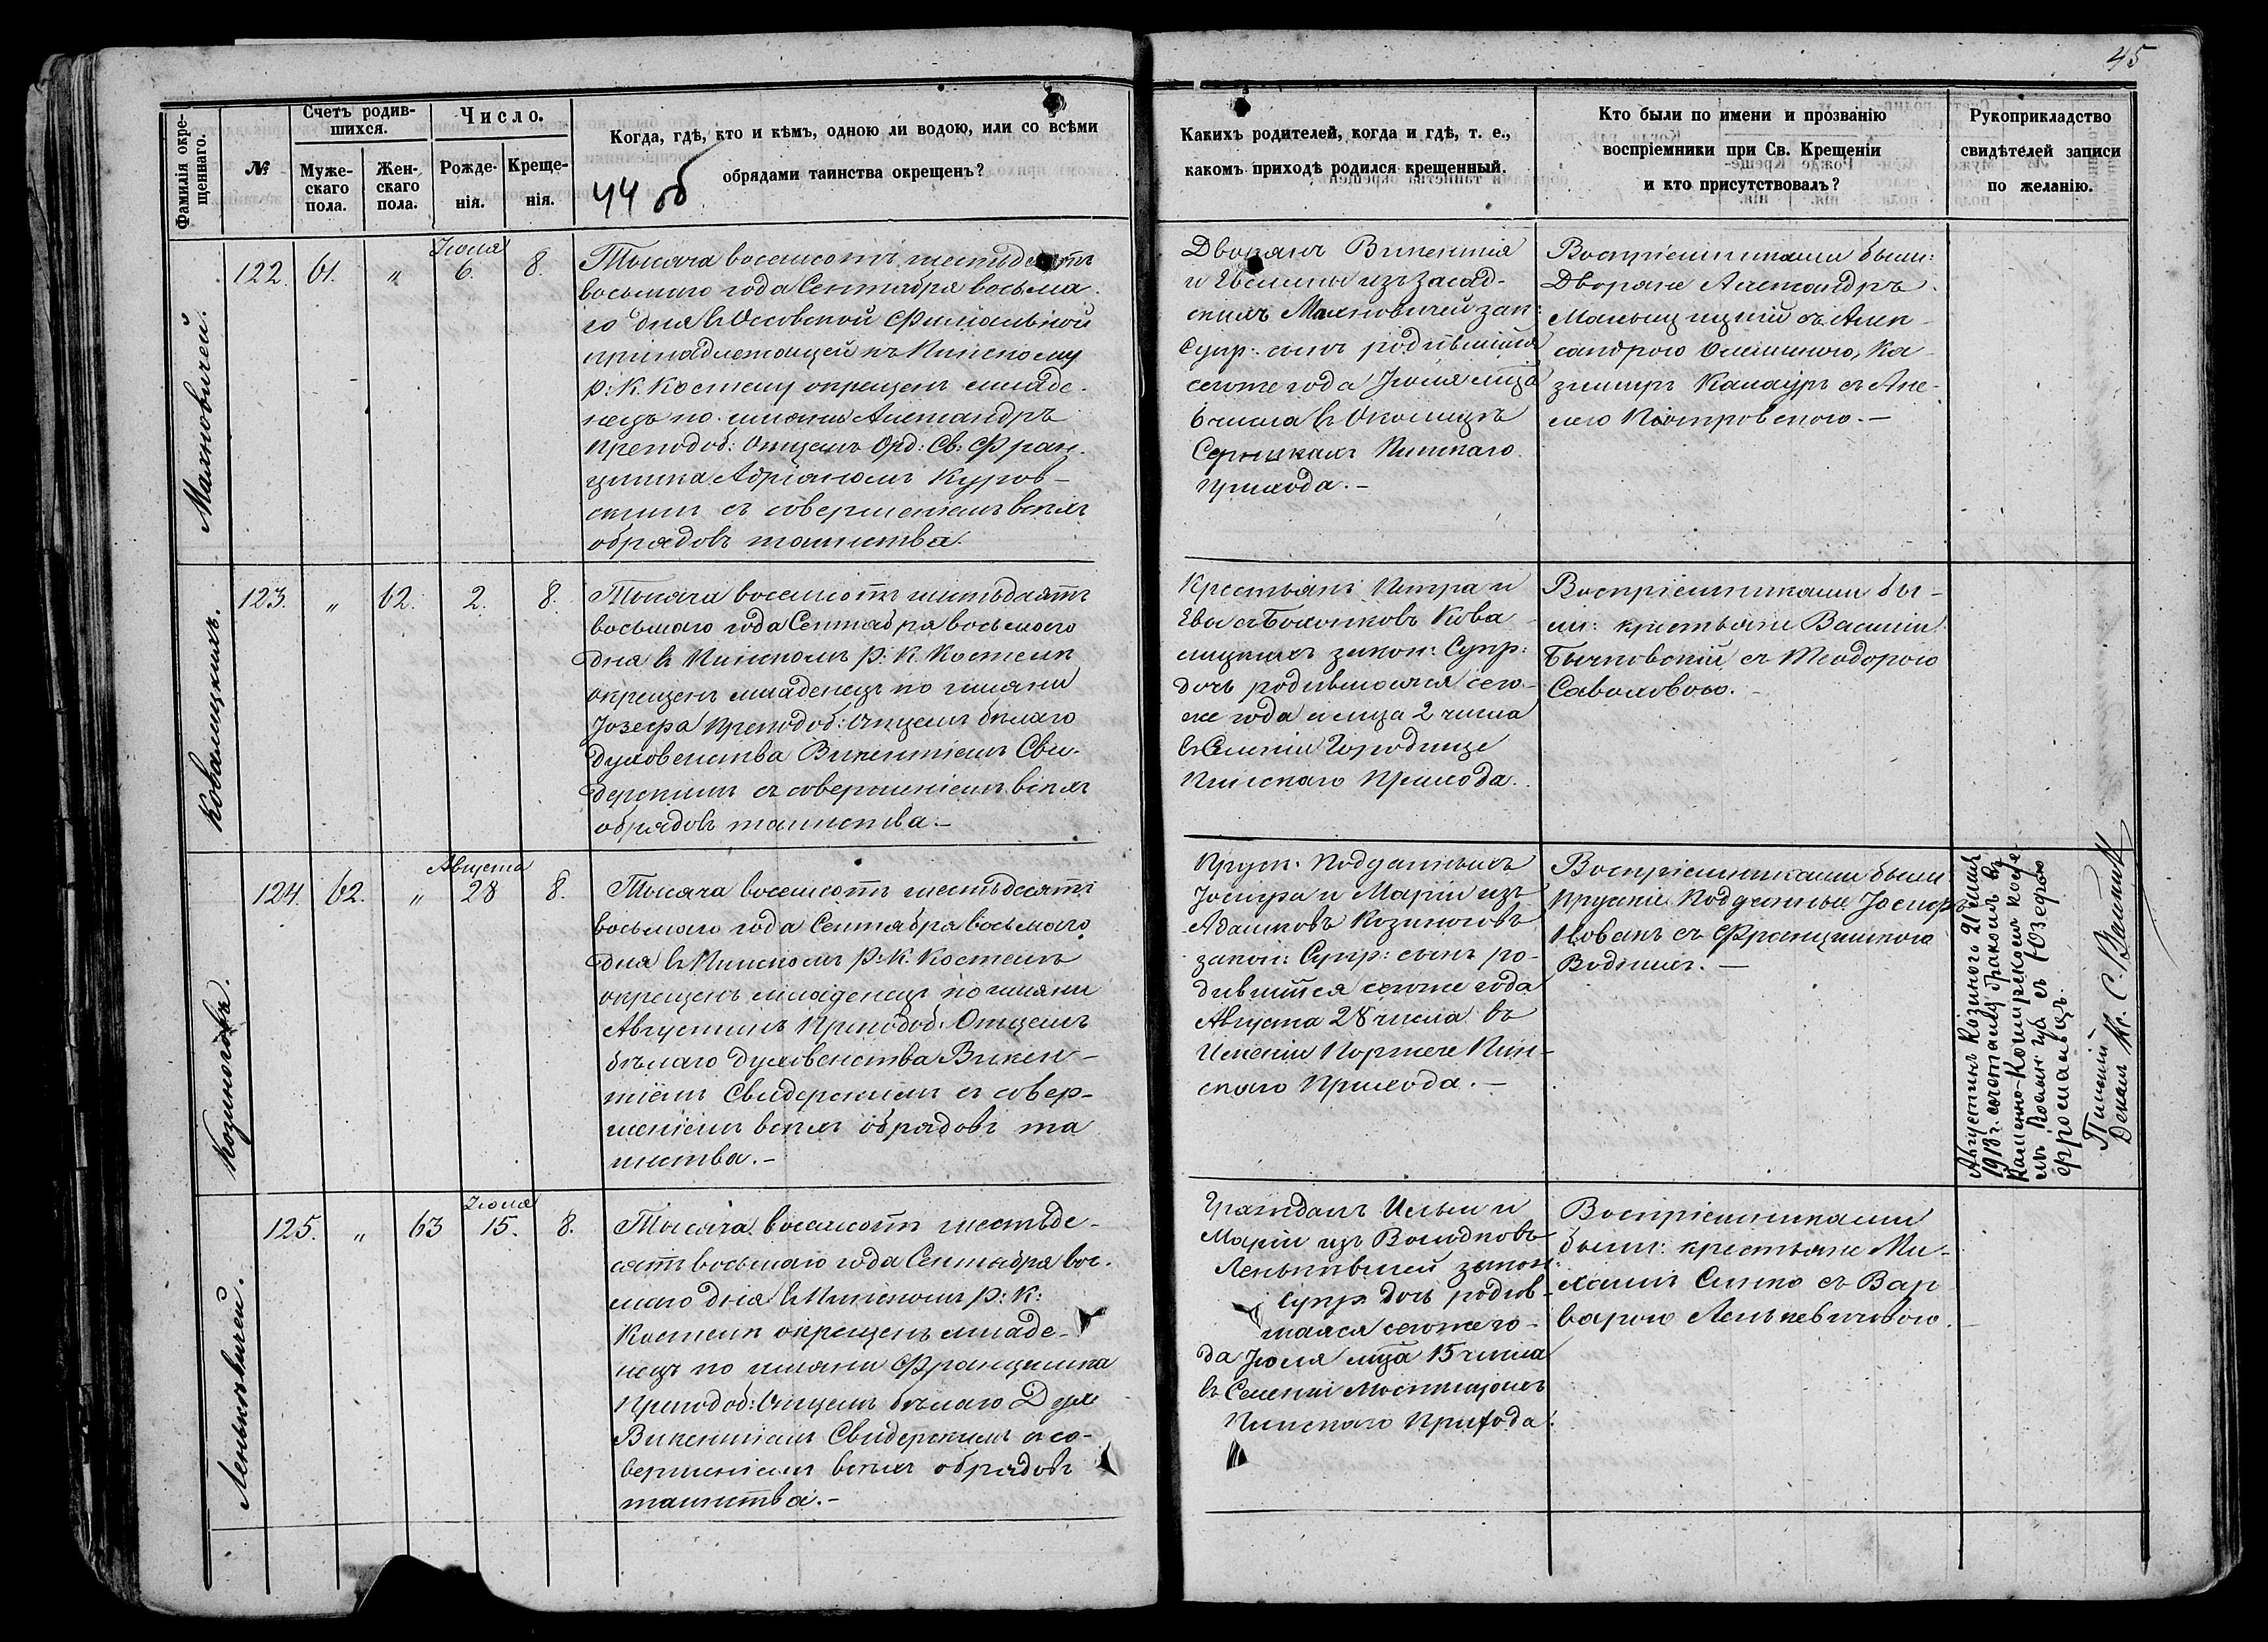 45
Фамилія окре-
щеннаго.
№
Счетъ родив-
шихся.
Муже-
скаго
пола.
Жен-
скаго
пола.
Число.
Рожде-
нія.
Креще-
нія.
Когда, гдѣ, кто и кѣмъ, одною ли водою, или со всѣми
обрядами таинства окрещенъ?
44 об
Какихъ родителей, когда и гдѣ, т. е.,
какомъ приходѣ родился крещенный.
Кто были по имени и прозванію
воспріемники при Св. Крещеніи
и кто присутствовалъ?
Рукоприкладство
свидѣтелей записи
по желанію.
Махновичей.
122. 61. „ Іюля 6. 8.
Тысяча восемсотъ шестьдесятъ
восьмаго года Сентября восьма
го дня въ Осовской Филіальной
принадлежащей къ Пинскому
р: К. Костелу окрещенъ младе-
нецъ по имяни Александръ
Преподоб: Отцемъ Орд: Св: Фран-
цишка Адріаномъ Куров-
скимъ съ совершеніемъ всѣхъ
обрядовъ таинства.
Дворянъ Викентія
и Евелины изъ Засад-
скихъ Махновичей зак:
Супр: сынъ родившійся
сегоже года Іюля мца
6 числа въ Околицѣ
Серникахъ Пинскаго
прихода.-
Воспріемниками были:
Дворяне Александръ
сандрою Олешиною, Ка-
зимиръ Калауръ съ Ане-
лею Піотровскою.-
Ковалицкихъ.
123. „ 62. 2. 8.
Тысяча восемсотъ шестьдсятъ
восьмаго года Сентября восьмаго
дня въ Пинскомъ Р: К. Костелѣ
окрещенъ младенецъ по имяни
Іозефа Преподоб: Отцемъ бѣлаго
духовенства Викентіемъ Сви-
дерскимъ съ совершеніемъ всѣхъ
обрядовъ таинства.-
Крестьянъ Петра и
лицкихъ закон: Супр:
дочь родившаяся сего-
же года и мца 2 числа
въ Селеніи Городище
Пинскаго Прихода.
Воспріемниками бы-
ли: крестьяне Василій
Бычковскій съ Теодорою
Саваловою.-
Козиноговъ.
124. 62. „ Августа 28 8.
Тысяча восемсотъ шестьдсятъ
восьмаго года Сентября восьмаго
дня въ Пинскомъ Р: К. Костелѣ
окрещенъ младенецъ по имяни
Августинъ Преподоб: Отцемъ
бѣлаго духовенства Викен-
тіемъ Свидерскимъ съ совер-
шеніемъ всѣхъ обрядовъ та
инства.-
Пруск: Подданныхъ
Іосифа и Маріи изъ
Адамковъ Козиноговъ
закон: Супр: сынъ ро-
дившійся сегоже года
Августа 28 числа въ
Имѣніи Поржече Пин-
скаго Прихода.-
Воспріемниками были
Прускіе Подданные Іосифъ
Новакъ съ Францишкою
Августинъ Козиногъ 21 мая
1918 г. сочетанъ бракомъ въ
Каменно-Коширскомъ косте-
лѣ Волын. губ. съ Юзефою
Пинскій
Деканъ Кс.
Ленькевичей.
125. „ 63 Іюля 15. 8.
Тысяча восемсотъ шестьде-
сятъ восьмаго года Сентября вос-
маго дня въ Пинскомъ Р: К:
Костелѣ окрещенъ младе-
нецъ по имяни Францишка
Преподоб: Отцемъ бѣлаго Дух
Викентіемъ Свидерскимъ съ со-
вершеніемъ всѣхъ обрядовъ
таинства.-
Гражданъ Ильи и
Маріи изъ Володковъ
Ленькевичей закон:
Супр: дочь родив-
шаяся сегоже го-
да Іюля мца 15 числа
Пинскаго Прихода:
Воспріемниками
были: крестьяне Ми-
хаилъ Синко съ Вар
варою Ленькевичовою.